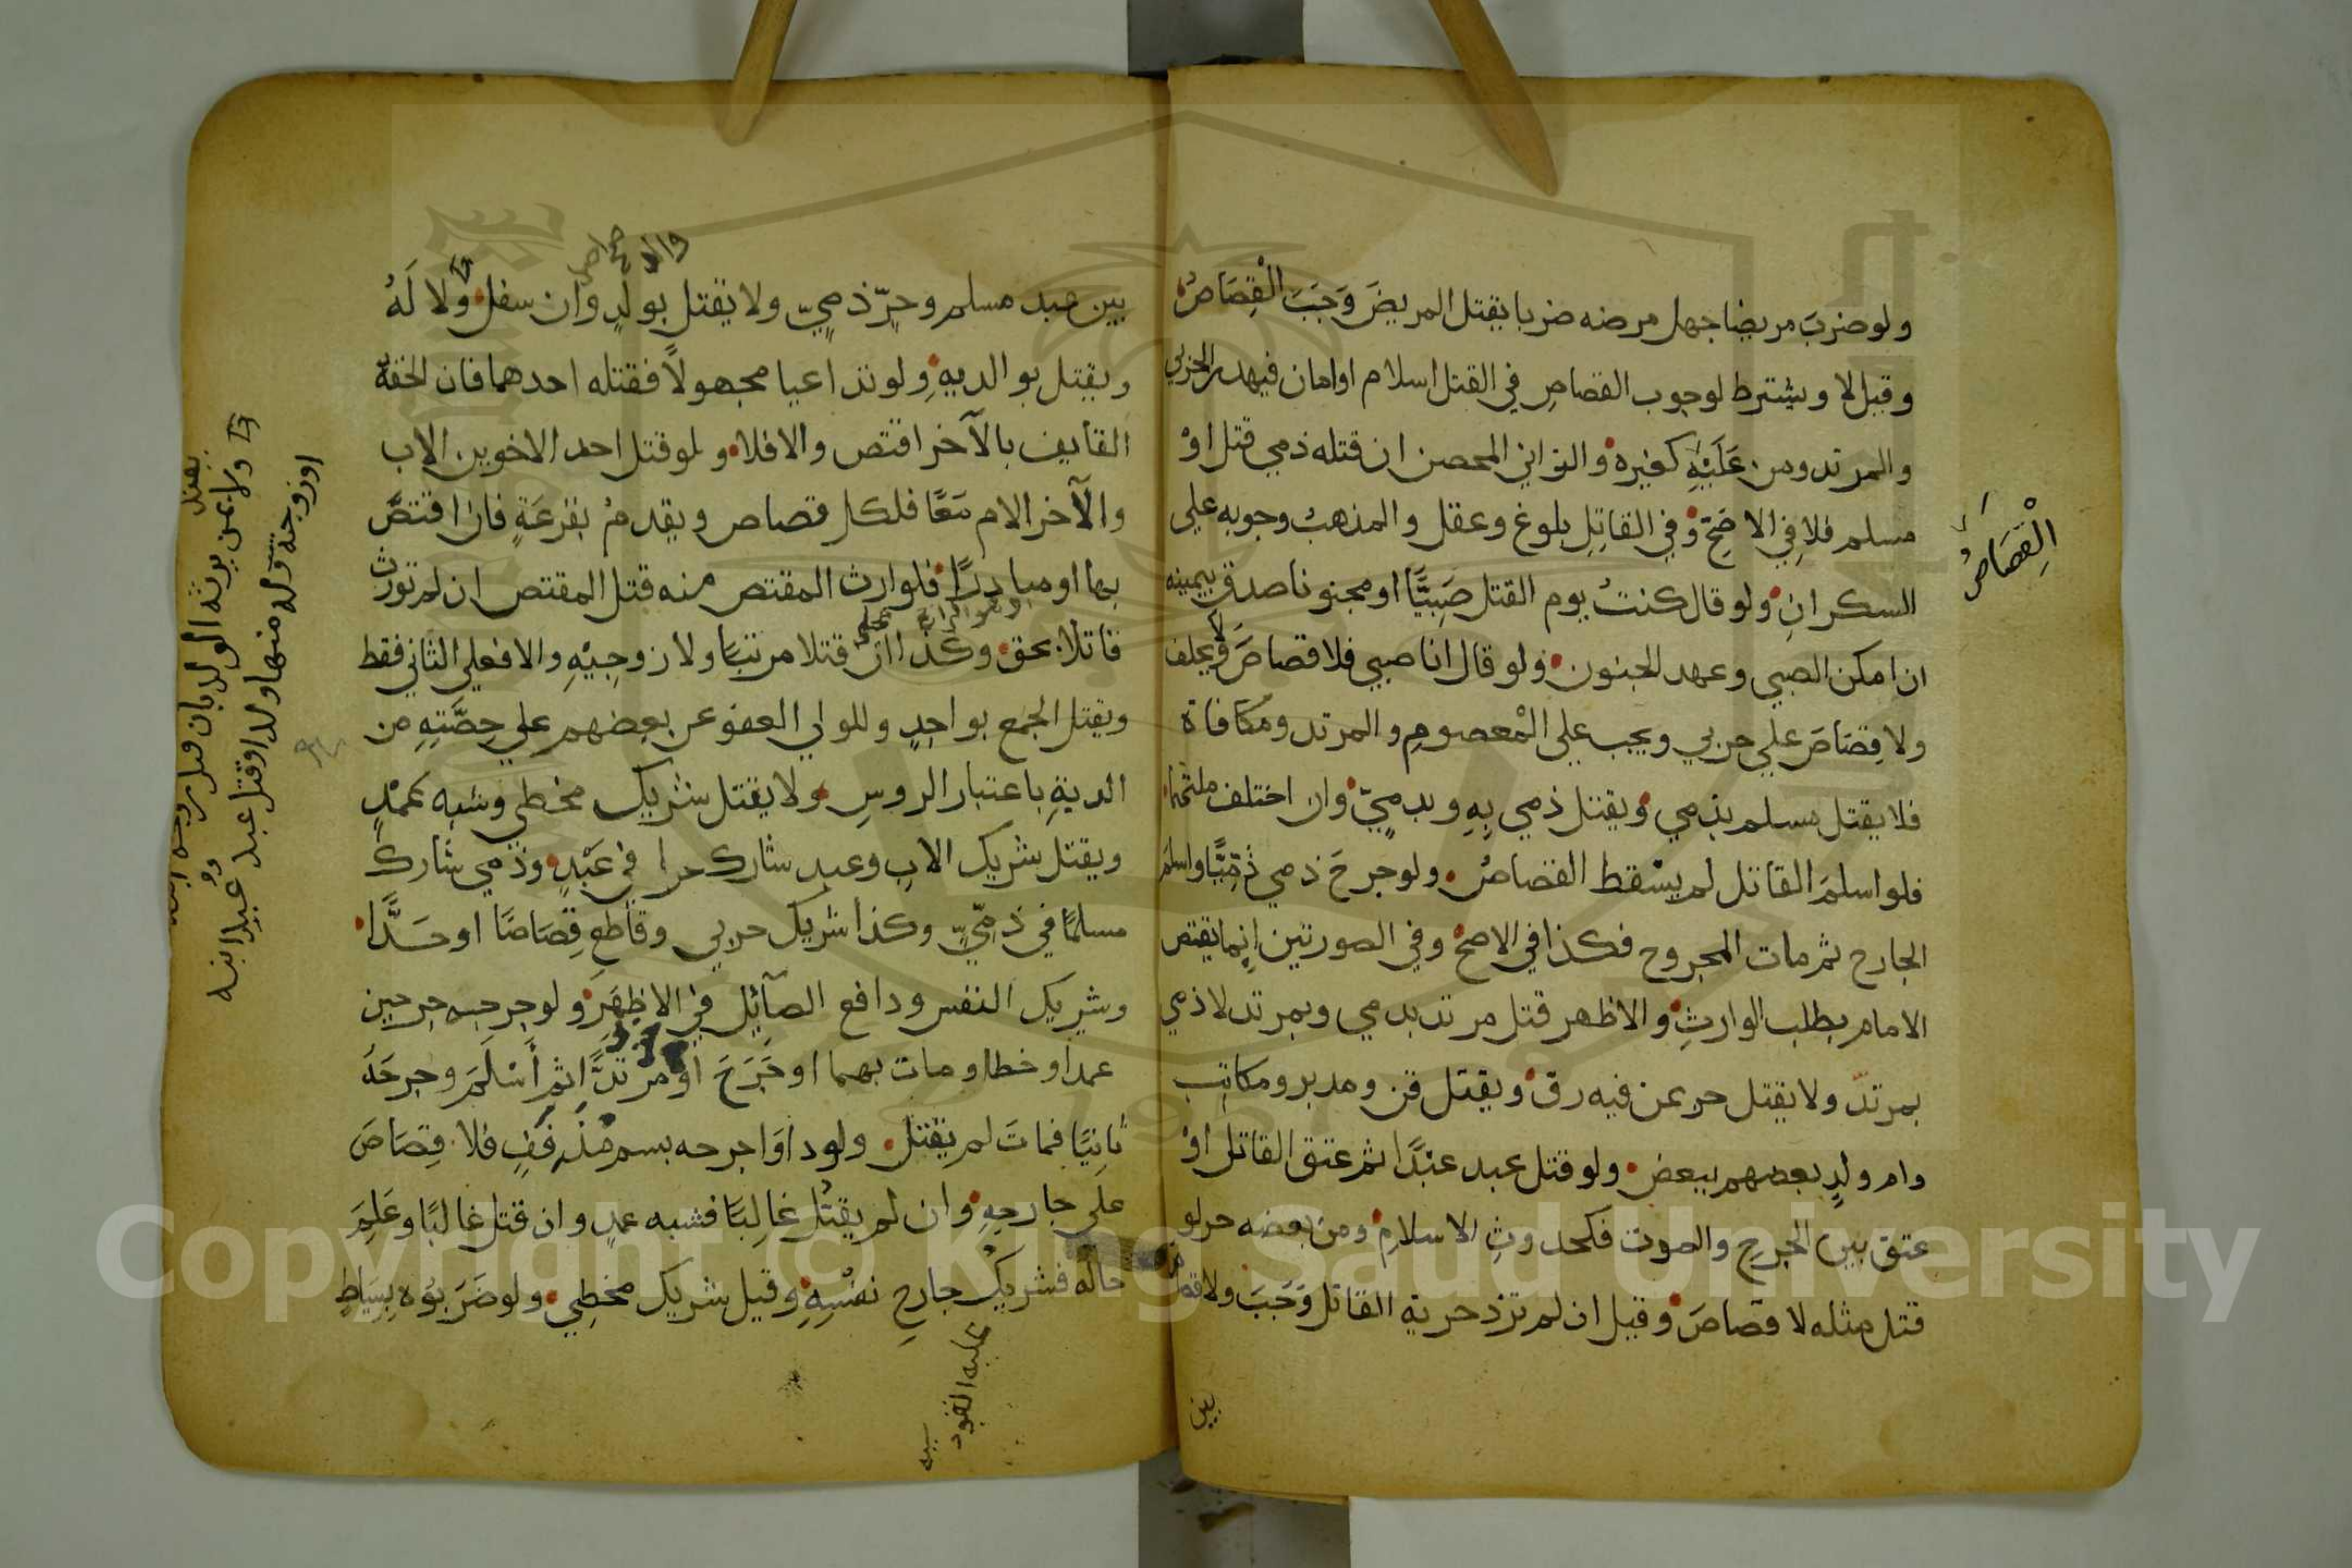 ولو ضربَ مريضا جهل مرضه ضربا يقتل المريضَ وَجَبَ الْقِصَاصُ
وقيل لا ويشترط لوجوب القصاصِ في القتل اسلام او امان فيهدر الحربي
والمرتد ومن عَلَيْهِ كغيره والزاني المحصن ان قتله ذمي قتل اوْ
مسلم فلا فِي الاصَحِّ وفي القاتِلِ بلوغ وعقل والمذهبُ وجوبه علي
السكرانِ ولو قال كنتُ يوم القتل صَبِيًّا او مجنونا صدق بيمينه
ان امكن الصبي وعهد الجنون ولو قال انا صبيي فلا قصاصَ ولا يحلف
ولا قِصَاصَ علي حربي ويجب علي الْمعصومِ والمرتد ومكافاة
فلا يقتل مسلم بذمي ويقتل ذمي بِهِ وبذميٍّ وان اختلف ملتهما
فلو اسلمَ القاتل لم يسْقط القصاصُ ولو جرحَ ذمي ذِمِّيًّا واسلم
الجارح ثم مات المجروح فكذا في الاصحِّ وفي الصورتين اِنما يقتص
الامام بطلب الوارثِ والاظهر قتل مرتد بذمي وبمرتد لا ذمي
بمرتدّ ولا يقتل حر بمن فيه رق ويقتل قن ومدبر ومكاتب
وام ولدٍ بعضهم ببعض ولو قتل عبد عبْدًا ثم عتق القاتل اوْ
عتق بين الجرحِ والموت فكحدوثِ الاسلامِ ومن بعضه حر لو
قتل مثله لا قصاصَ وقيل ان لم تزد حرية القاتل وَجَبَ ولا قصاص
بين
الْقِصَاصُ
بين عبد مسلم وحرّ ذميّ ولا يقتل بولدٍ وان سفل ولا لَهُ
ويقتل بوالديهِ ولو تداعيا مجهولاً فقتله احدهما فان الحقه
القايف بالآخر اقتص والا فلا ولو قتل احد الاخوين الاب
والآخر الام مَعًا فلكل قصاص ويقدمُ بقرعَةٍ فان اقتصَّ
بها او مبادرًا فلوارث المقتص منه قتل المقتص ان لم تورث
قاتلا بحق وكذا ان قتلا مرتبًا ولا زوجِيّهِ والا فعلي الثاني فقط
ويقتل الجمع بواحِدٍ وللولي العفو عن بعضهم علي حِصَّتِهِ من
الديةِ باعتبار الروسِ ولا يقتل شريك مخطي وشبه عَمْدٍ
ويقتل شريك الابِ وعبد شارك حرا في عَبْدٍ وذمي شارك
مسلمًا في ذِمِّيٍّ وكذا شريك حربي وقاطع قِصَاصًا او حَدًّا
وشريك النفس ودافع الصآئِل في الاظهَرِ ولو جرحه جرحين
عمدا وخطا ومات بهما او جَرَحَ او مرتدًّا ثم أَسْلَمَ وجرحَهُ
ثانِيًا فماتَ لم يقتل ولو داوَا جرحه بسم مُذَفِّفٍ فلا قِصَاصَ
على جارحِهِ وان لم يقتُل غالِبًا فشبه عمدٍ وان قتل غالبًا وعَلِمَ
حاله فشريك جارحِ نفسِهِ وقيل شريك مخطِي ولو ضَرَبوُه بِسِيَاطٍ
ولا بمن يرثه الولد بان
او زوجته وله منها ولد او قتل عبد
Copyright © King Saud University